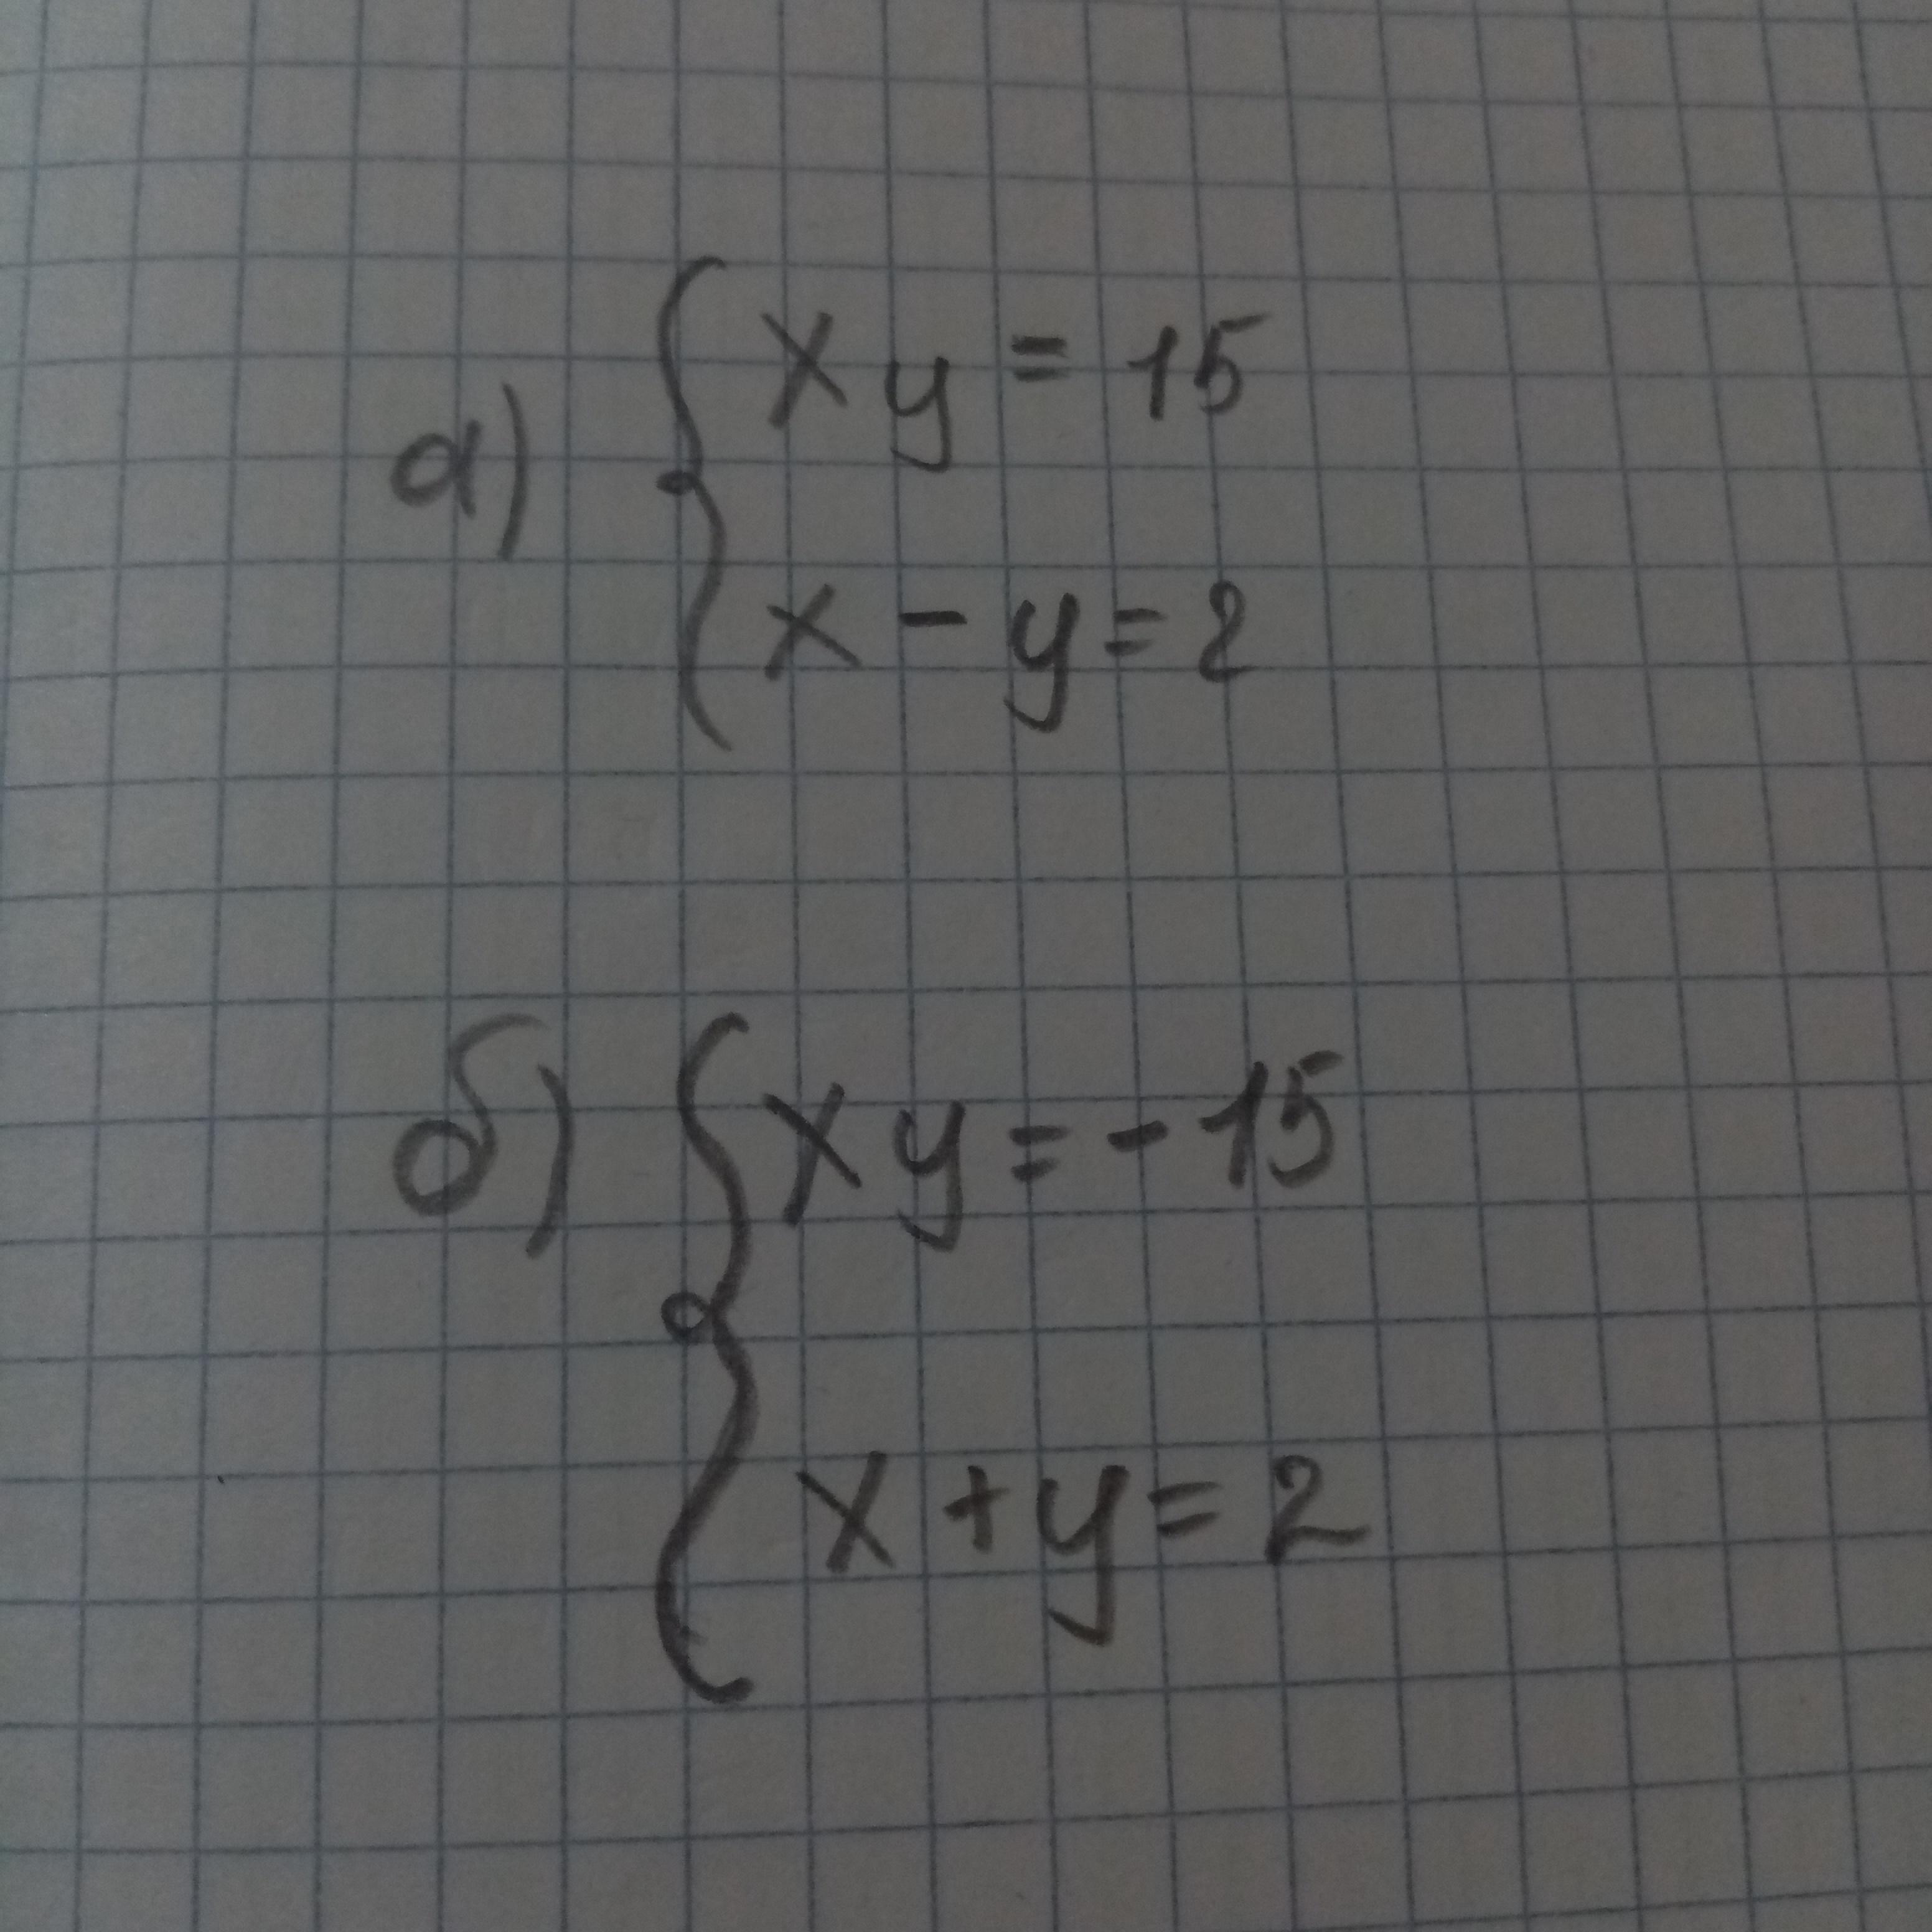 а) { xy = 15
x - y = 2
б) { xy = -15
x + y = 2